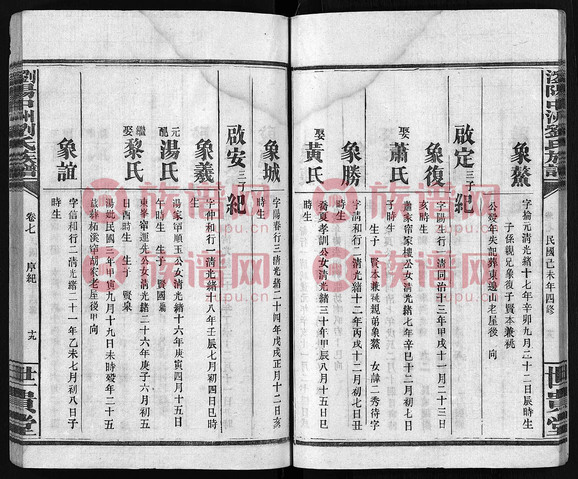 瀏陽中洲劉氏族譜
民國己未年四修
世貴堂
象鰲
字掄元清光緒十七年辛卯九月二十二日辰時生
子係親兄象復子賢本兼祧
公歿年失記葬東邊山老屋後 向
啟定三子紀
象復
字陽生行一清同治十三年甲戌十一月二十三日
亥時生
娶
蕭氏
蕭家宿家樓公女清光緒七年辛巳十二月初七日
子時生
生子 賢本兼祧親弟象鰲 女諱二秀待字
象勝
字清和行二清光緒十二年丙戌十二月初七日丑
時生
娶
黃氏
喬夏孝訓公女清光緒三十年甲辰八月十五日巳
時生
象城
字陽春行三清光緒二十四年戊戌正月十二日亥
時生
啟安三子紀
象義
字仲和行一清光緒十八年壬辰七月初四日巳時
生
元配
湯氏
湯家嶺順玉公女清光緒十六年庚寅四月十五日
午時生 生子 賢國
湯歿民國三年甲寅九月十九日未時
繼娶
黎氏
東峯嶺運先公女清光緒二十六年庚子六月初五
日酉時生 生子 賢
象誼
字信和行二清光緒二十一年乙未七月初八日子
時生
瀏陽中洲劉氏族譜
卷七
序紀
十九
世貴堂
族谱网